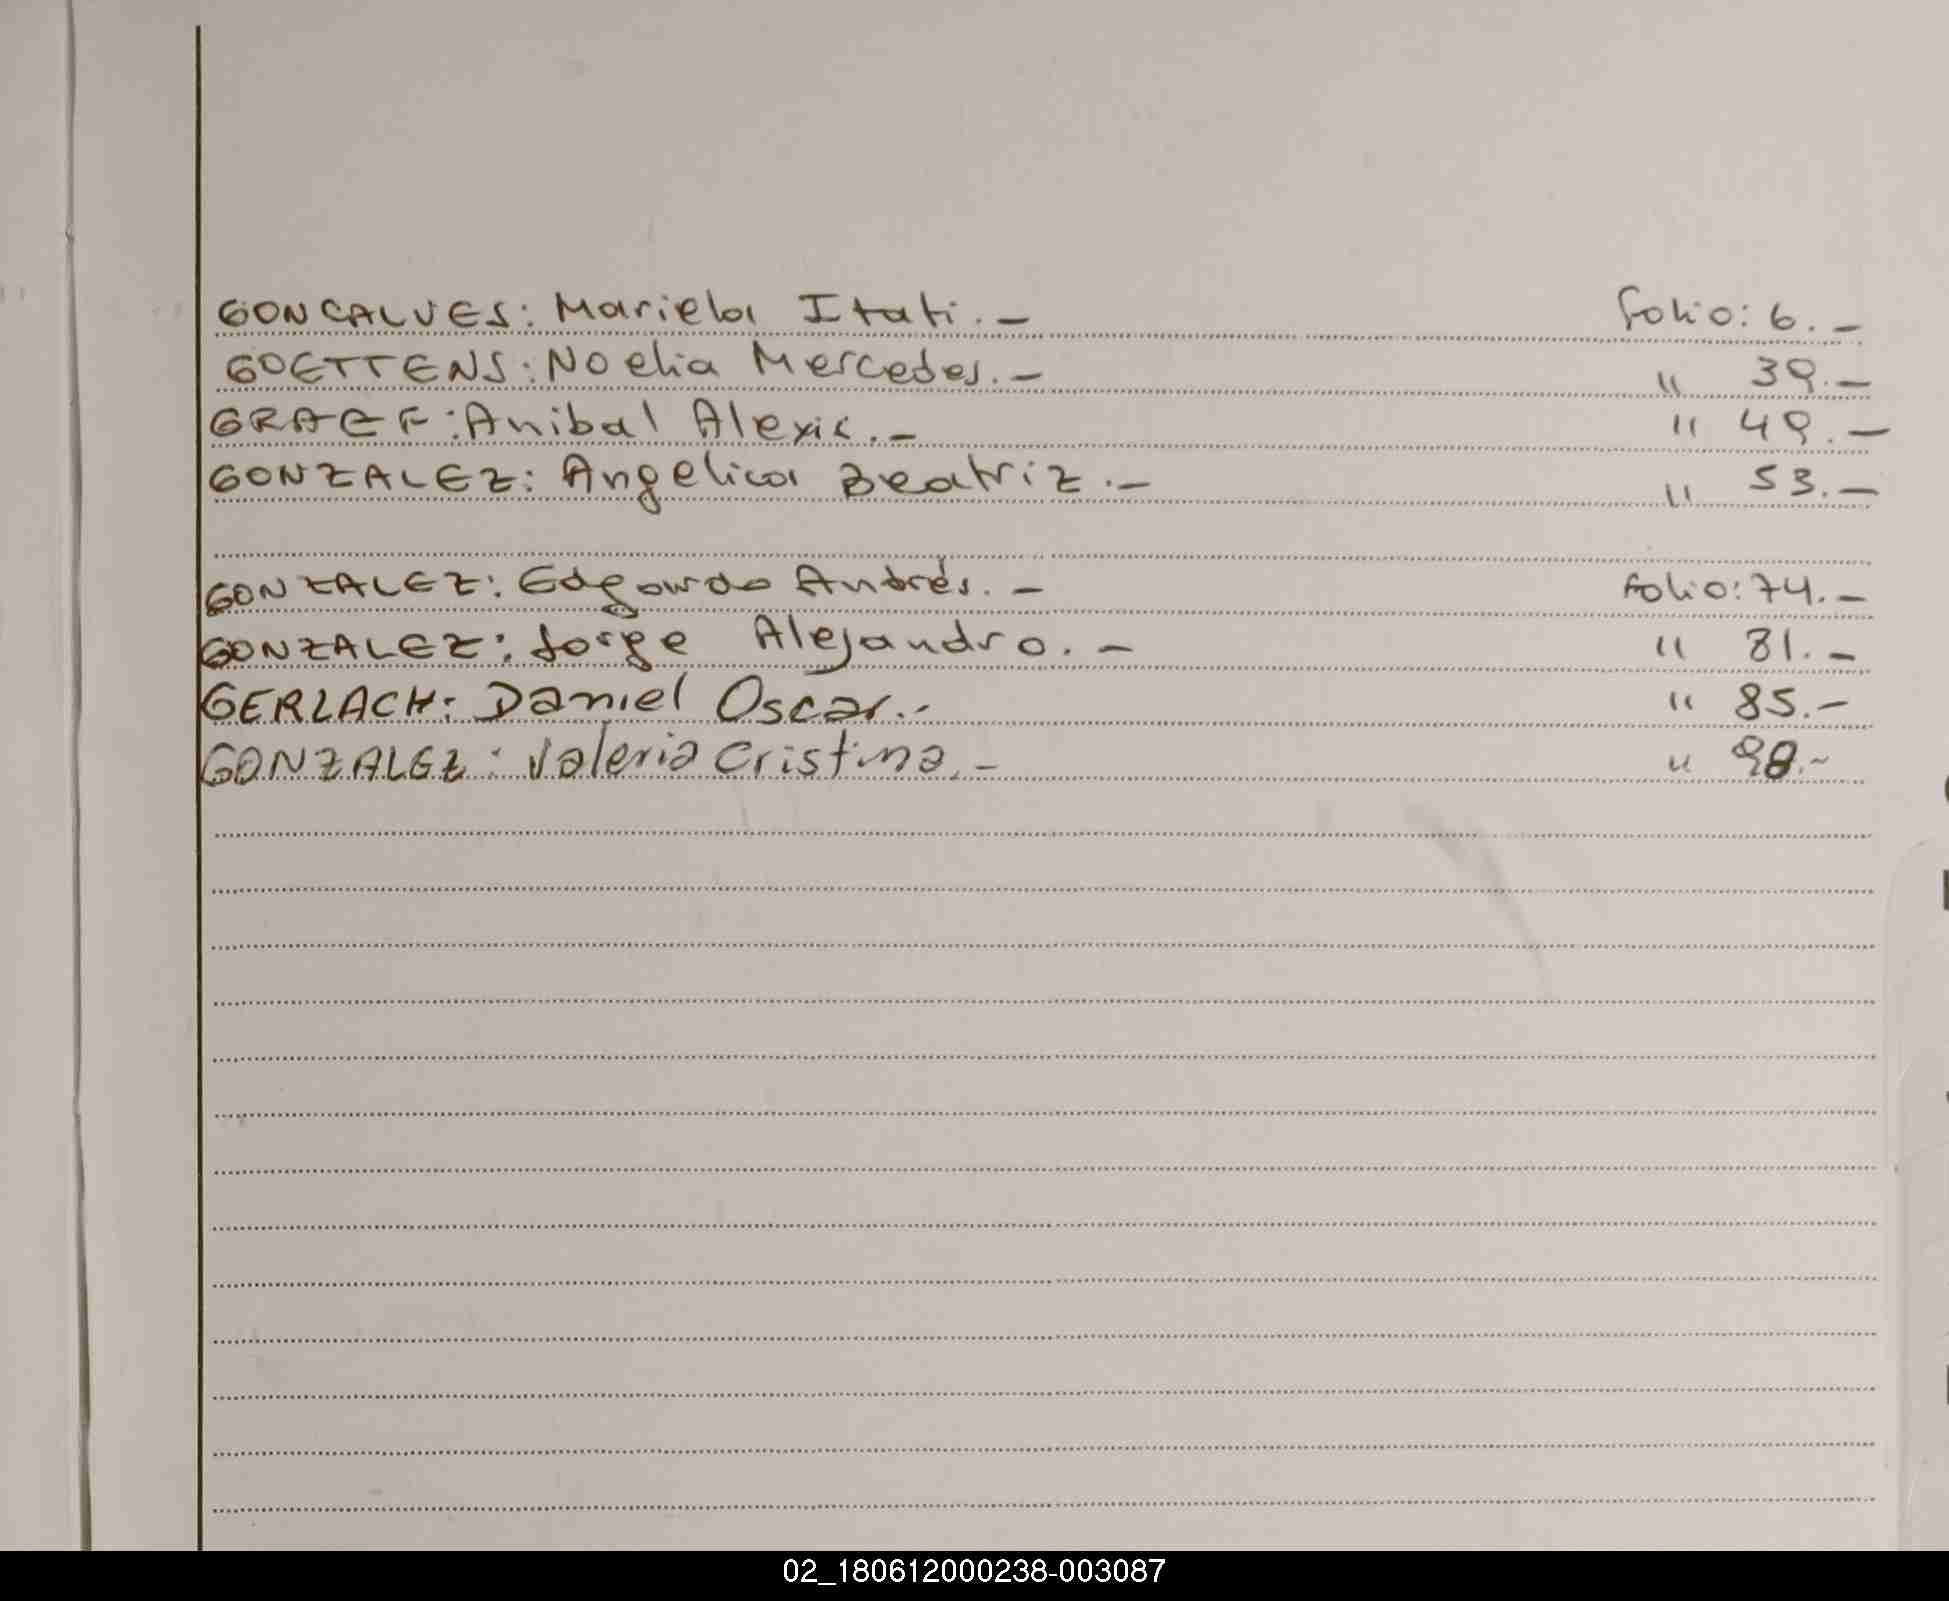 GONCALVES: Mariela Itati.- folio: 6.-
GOETTENS: Noelia Mercedes.- " 39.-
GRAEF: Anibal Alexis.- " 49.-
GONZALEZ: Angelica Beatriz.- " 53.-
GONZALEZ: Edgardo Andrés.- folio: 74.-
GONZALEZ: Jorge Alejandro.- " 81.-
GERLACH: Daniel Oscar.- " 85.-
GONZALEZ: Valeria Cristina.- " 98.-
02_180612000238-003087